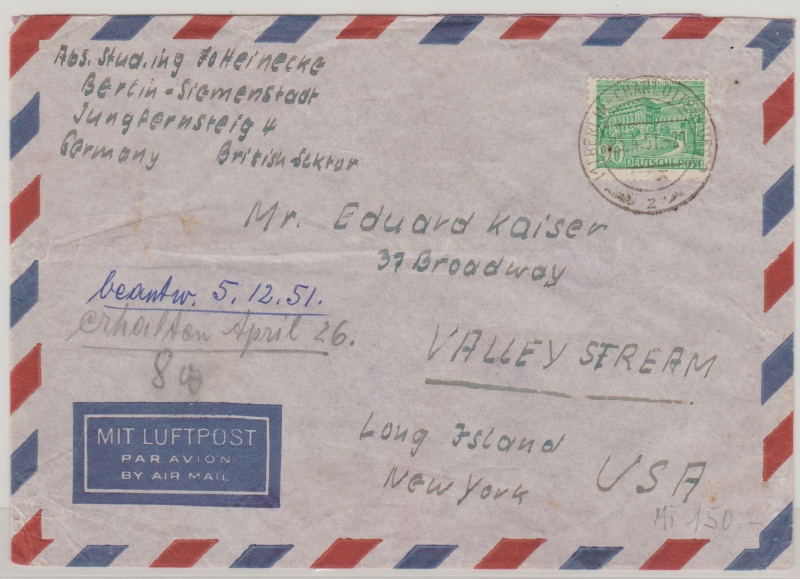 Abs. Stud. ing Jo Heinecke
Berlin-Siemenstadt
Jungfernsteig 4
Germany British-Sektor
BERLIN-CHARLOTTENBURG
2
90 DEUTSCHE POST
Mr. Eduard Kaiser
37 Broadway
VALLEY STREAM
Long Island
New York USA
beantw. 5.12.51.
erhalten April 26.
MIT LUFTPOST
PAR AVION
BY AIR MAIL
Mi 150.-